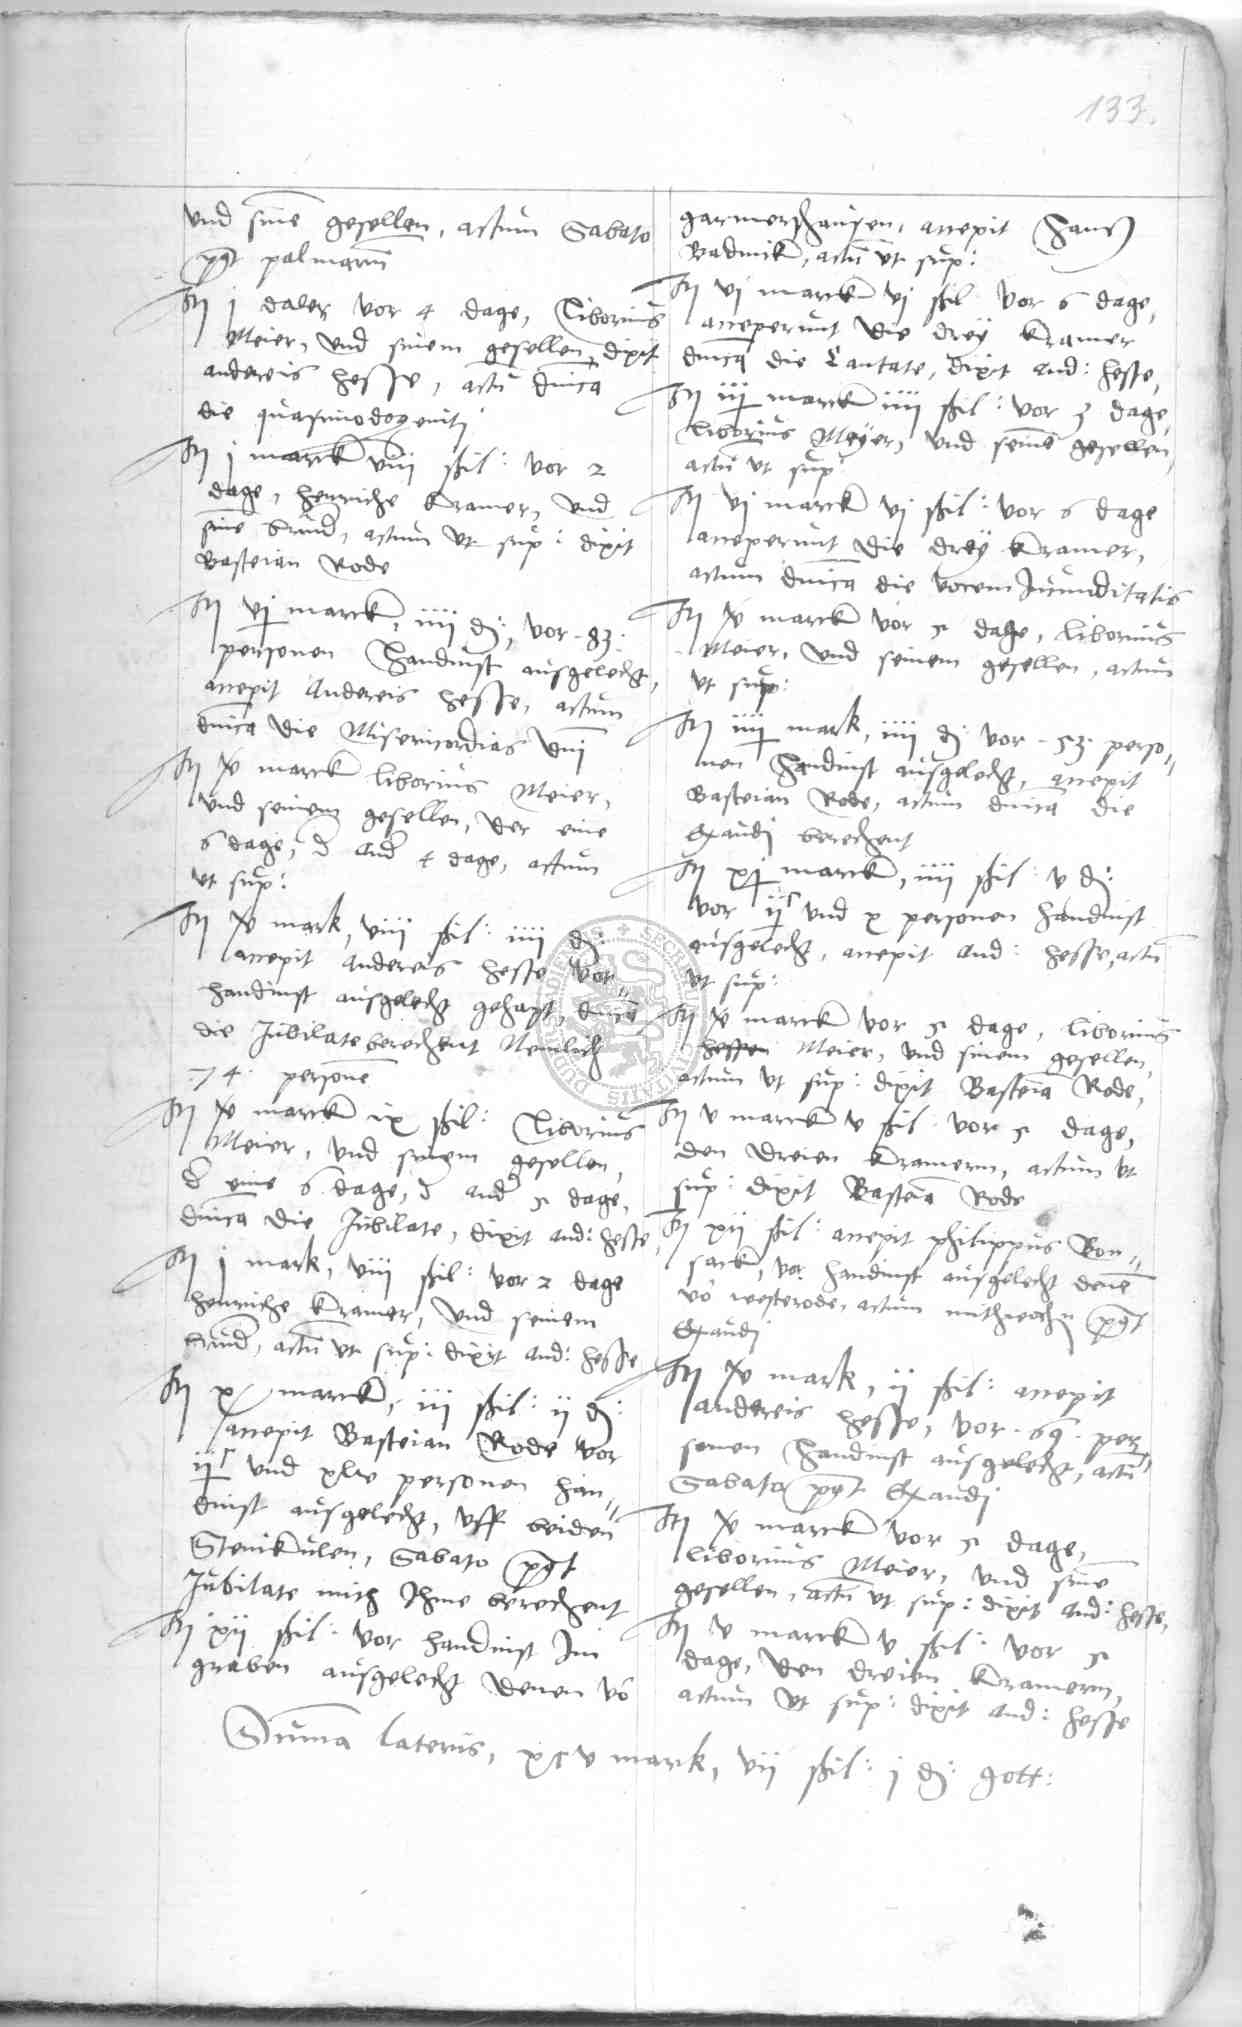 133.
und sine gesellen, actum Sabato
post palmarum
Itm j daler vor 4 dage, Liborius
Meier, und sinem gesellen, dixit
andereis hesse, actu dnica
die quasimodogeniti
Itm j marck viij ßil: vor 2
dage, henriche Kramer, und
sine brud, actum ut sup: dixit
Basteian Rode
Itm vj marck, iiij d, vor 83
personen handinst ausgelecht,
accepit Andereis hesse, actum
dnica die Misericordias dni
Itm marck liborius Meier,
und seinem gesellen, der eine
6 dage, d and 4 dage, actum
ut sup:
Itm mark, viij ßil: iiij d:
accepit andereis hesse vor
handinst ausgelecht gehapt, dnica
die Jubilate berechent Nemlich
74 personen
Itm marck ix ßil: Liborius
Meier, und sinem gesellen,
d eine 6 dage, d and 5 dage,
dnica die Jubilate, dixit and: hesse,
Itm j mark, viij ßil: vor 2 dage
henriche Kramer, und seinem
brud, actu ut sup: dixit and: hesse
Itm x marck, iij ßil: ij d:
accepit Basteian Rode vor
ijC und xlv personen han„
dinst ausgelecht, uff beiden
Steinkulen, Sabato post
Jubilate mith Ihme berechent
Itm xij ßil: vor handinst Im
graben ausgelecht denen vo
garmershausen, accepit Hans
actu ut sup:
Itm vj marck vj ßil vor 6 dage,
acceperunt die drey Kramer
dnica die Cantate, dixit and: hesse,
Itm marck iiij ßil: vor 5 dage
Liborius Meyer, und seine gesellen,
actu ut sup
Itm vj marck vj ßil: vor 6 dage
acceperunt die drey Kramer,
actum dnica die vocem Jucunditatis
Itm marck vor 5 dage, liborius
Meier, und seinem gesellen, actum
ut sup:
Itm mark, iiij d vor 53 perso„
nen handinst ausgelecht, accepit
Basteian Rode, actum dnica die
Exaudi berechent
Itm marck, iiij ßil: v d:
vor ijC und x personen handinst
ausgelecht, accepit and: hesse, actu
ut sup:
Itm marck vor 5 dage, liborius
hessen Meier, und sinem gesellen,
actum ut sup: dixit Basteia Rode,
Itm v marck v ßil vor 5 dage,
den dreien Kramern, actum ut
sup: dixit Basteia Rode
Itm xij ßil: accepit philippus Bon„
sack, vor handinst ausgelecht denen
vo westerode, actum mithwochn post
Exaudi
Itm mark, ij ßil: accepit
andereis hesse, vor 69 per„
sonen handinst ausgelecht, actu
Sabato post Exaudi
Itm marck vor 5 dage,
liborius Meier, und sine
gesellen, actu ut sup: dixit and: hesse,
Itm v marck v ßil: vor 5
dage, den dreien Kramern,
actum ut sup: dixit and: hesse
Summa lateris, xcv mark, vij ßil: j d: gott: